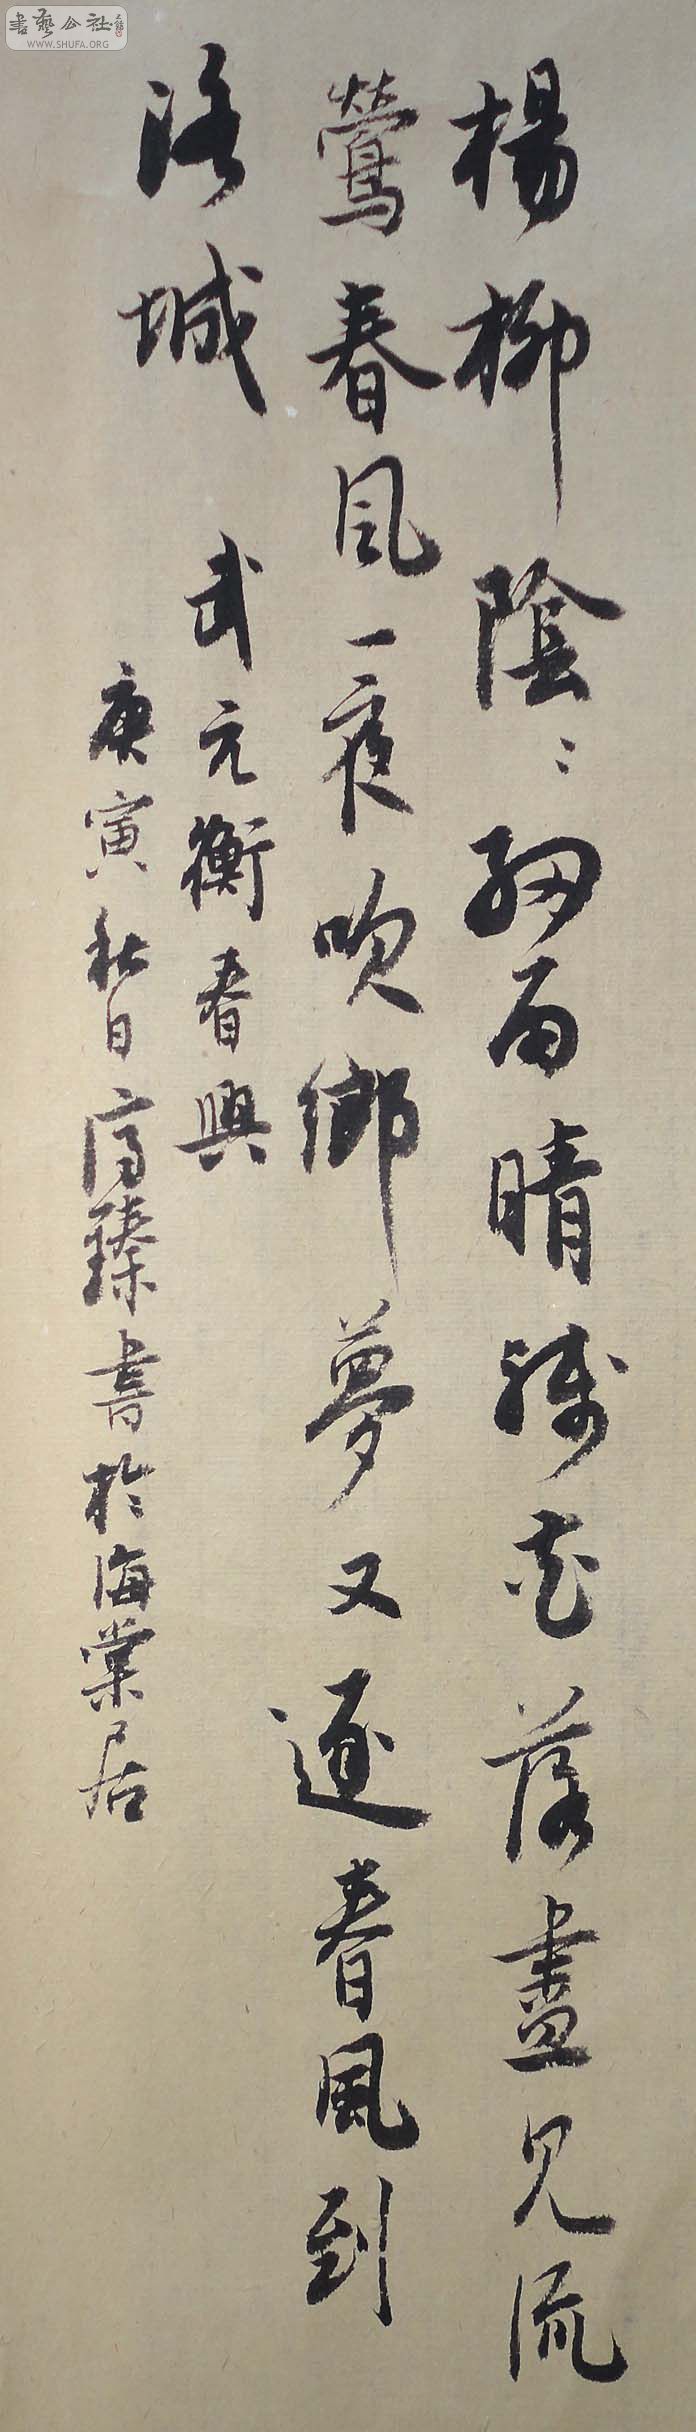 書藝公社
WWW.SHUFA.ORG
楊柳陰〻細雨晴殘花落盡見流
鶯春風一夜吹鄉夢又逐春風到
洛城
武元衡春興
庚寅秋日高臻書於海棠居